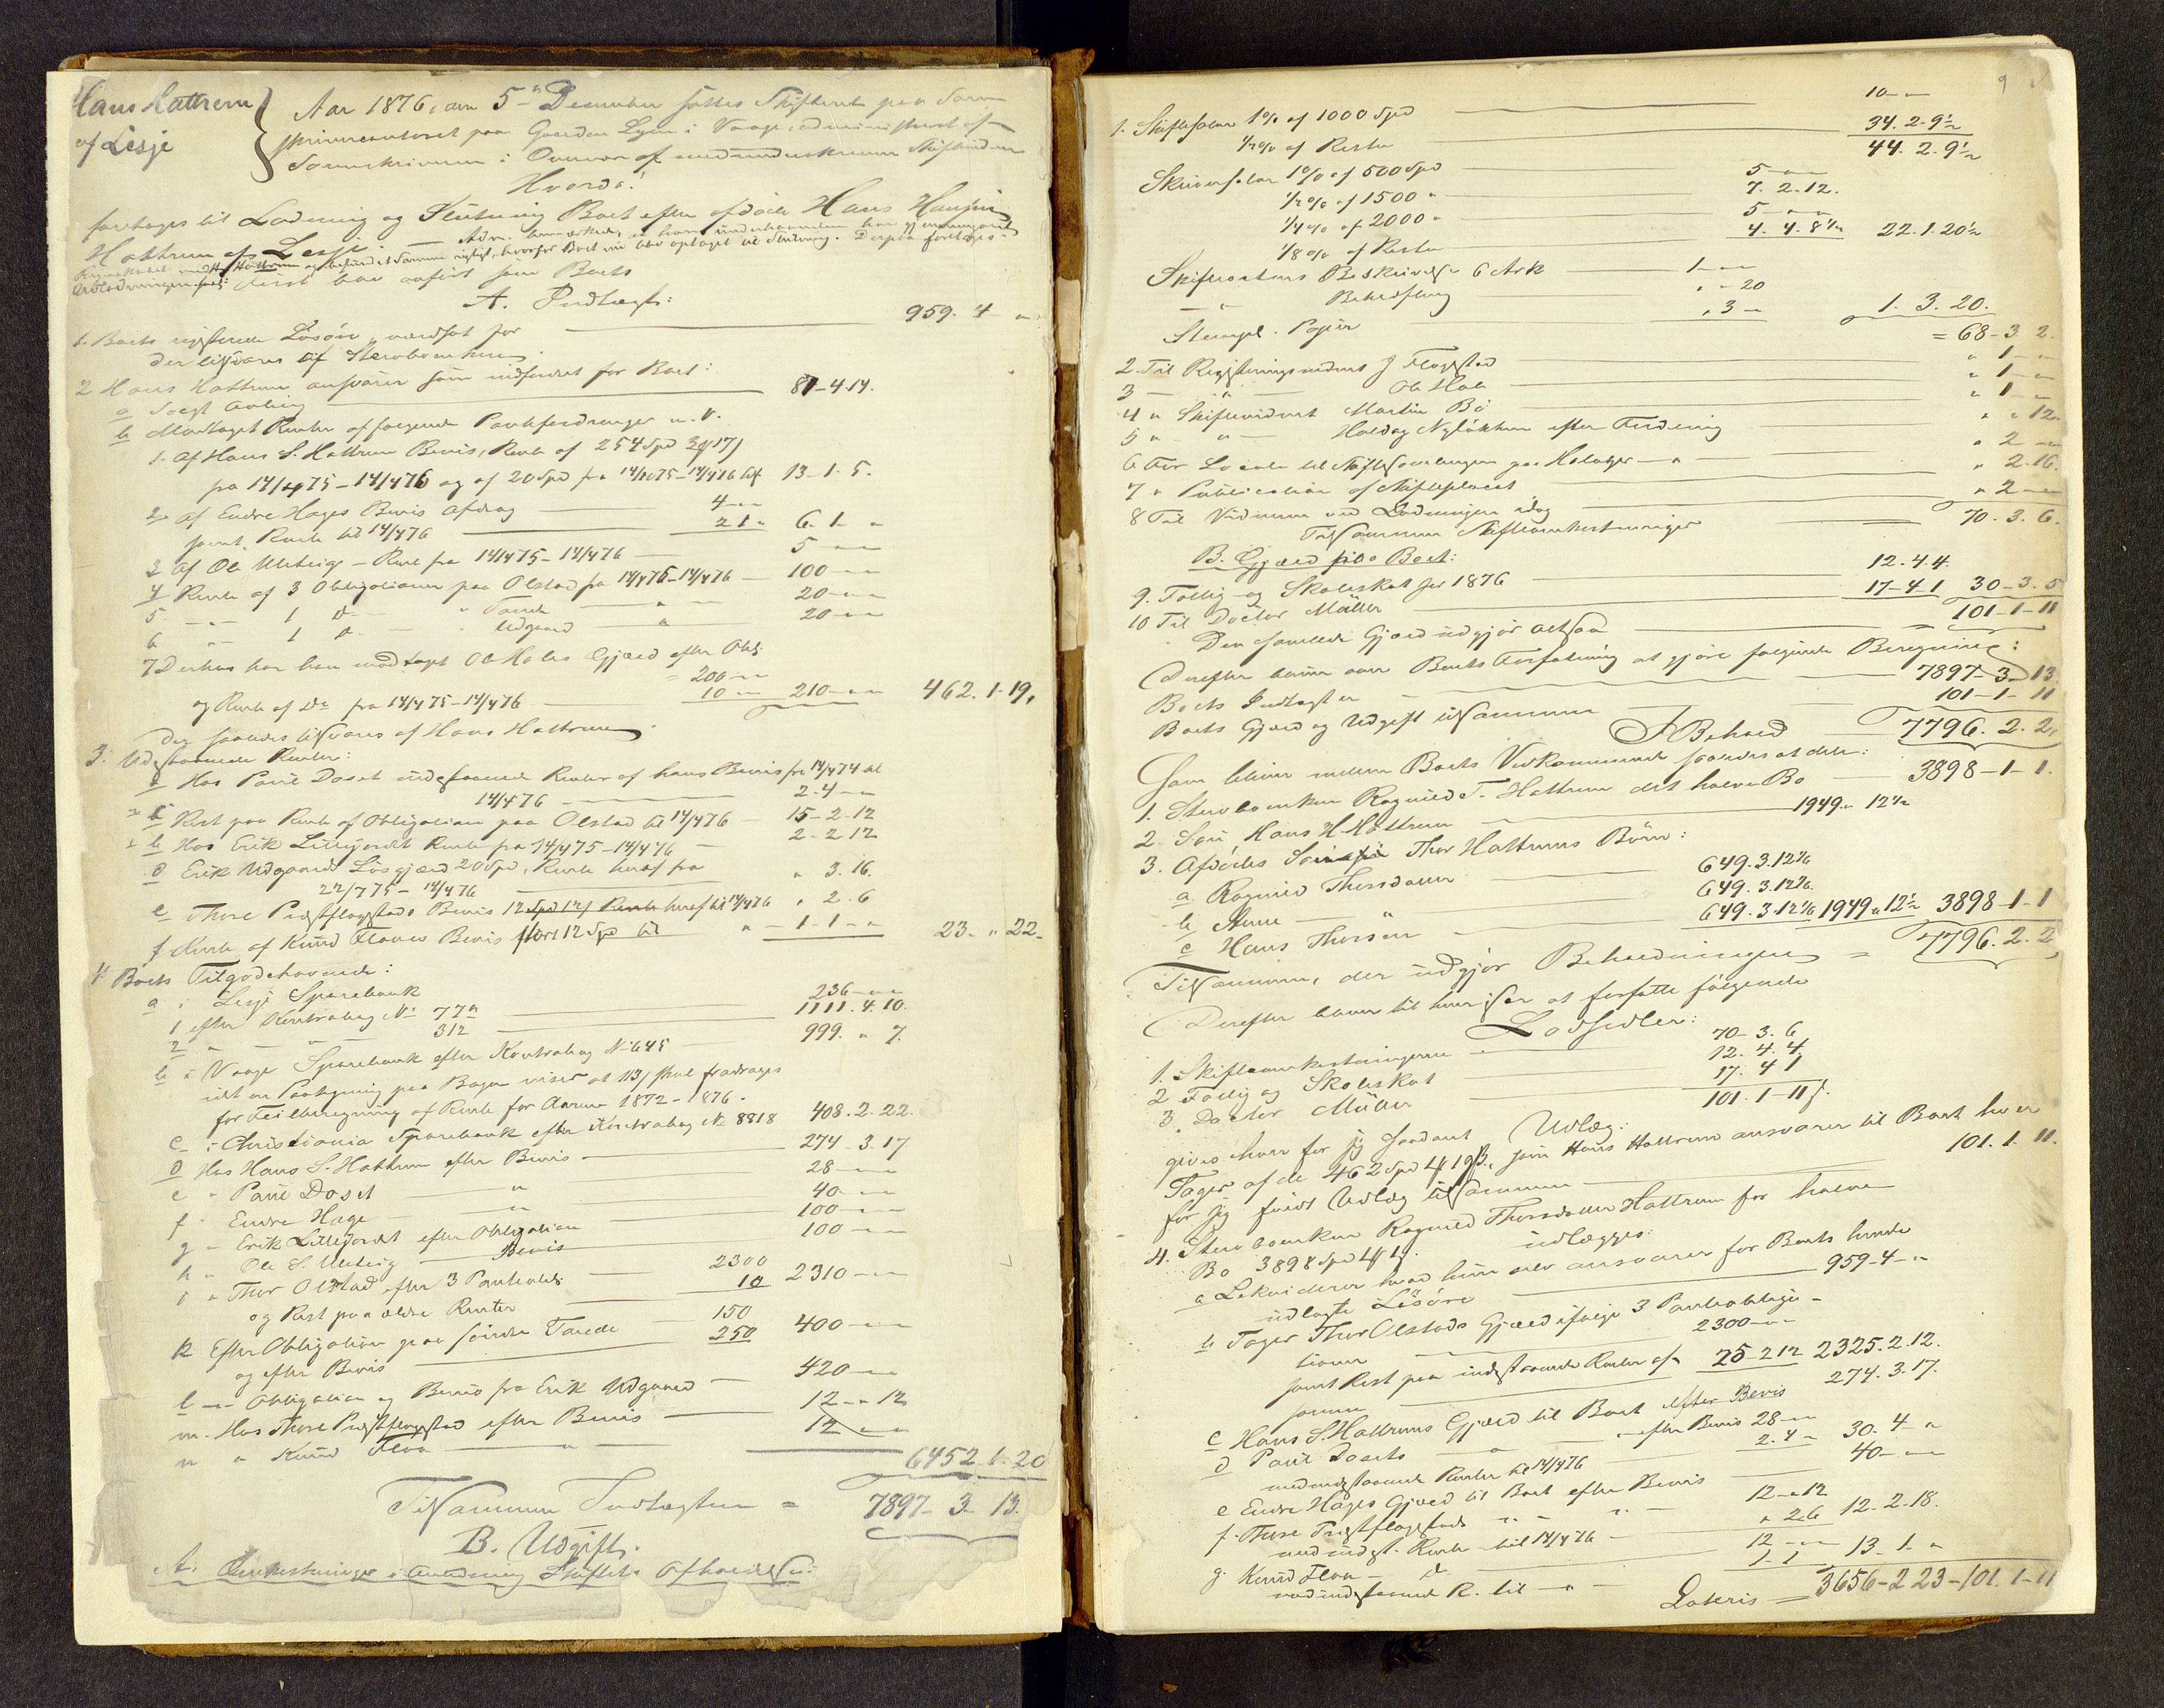 Hans Hattrem
af Lesje
Aar 1876, den 5te December sattes Skifteret paa Soren-
skrivercontoret paa Gaarden Lyen i Vaage, administreret af
Sorenskriveren i Overvær af medunderskrevne Skiftevidner
Hvorda!
foretages til Lodning og Slutning Boet efter afdøde Hans Hansen
Hattrem af Lesje. — Adm. bemærkede, at han underhaanden har gjennemgaaet
Regnskabet med H. Hattrem og befundet Samme rigtigt, hvorfor Boet nu blev optaget til Slutning. Derpaa foretages
Udlodningen saal: Først blev anført som Boets
A. Indtægt:
1. Boets registerede Løsøre, værdsat for — 959. 4 "
der tilsvares af Stervboenken
2 Hans Hattrem ansvarer som indfordret for Boet:
a Solgt Avling — 87-4.14.
b Modtaget Renter af følgende Pantefordringer m. V.
1. Af Hans S. Hattrem Bevis, Rente af 254 Spd 3 17
fra 14/4 75 - 14/4 76 og af 20 Spd fra 14/10 75 - 14/4 76 13-1-5.
2 af Endre Hages Bevis Afdrag — 4 - "
samt Rente til 14/4 76 — 2 1 " 6- 1- "
3 Af Ole Uleteig - Rente fra 14/4 75 - 14/4 76 — 5 " "
4 Rente af 3 Obligationer paa Olstad fra 14/4 75 - 14/4 76 — 100 - "
5 - " - 1 D. - " Tande — " — 20 - "
6 " - 1 D. - " Udgaard — " — 20 - "
7 Derhos har han modtaget Ole Holes Gjæld efter Obl.
= 200 - "
og Rente af Do fra 14/4 75 - 14/4 76 — 10 - " 210 - " 462. 1-19.
der saaledes tilsvares af Hans Hattrem.
3. Udestaaende Renter:
a Hos Paul Doset udestaaende Renter af hans Bevis fra 14/4 74 til
14/4 76 — 2-4 - "
Rest paa Rente af Obligation paa Olstad til 14/4 76 — 15-2-12
Hos Erik Lillejordet Rente fra 14/4 75 - 14/4 76 — 2-2 12
d Erik Udgaards Løsgjæld 20 Spd, Rente heraf fra
22/7 75 - 14/4 76 — " 3. 16.
e Thore Præstflagstads Bevis 12 Spd 12 Rente heraf til 14/4 76 " 2. 6
f Rente af Knud Floaes Bevis 12 Spd til " - 1-1 - " 23. " 22-
4 Boets Tilgodehavende:
a i Lesje Sparebank
1 efter Kontrabog No 77a — 236 - "
2 " " 312 — 1111. 4. 10.
b i Vaage Sparebank efter Kontrabog No 645 — 999. " 7.
idet en Paategning paa Bogen viser at 113 skal fradrages
for Feilberegning af Rente for Aarene 1872 - 1876.
c i Christiania Sparebank efter Kontrabog No 8818 408. 2. 22.
d Hos Hans S. Hattrem efter Bevis — 274. 3. 17
e " Paul Doset — " — 28 - "
f " Endre Hage — " — 40 - "
g " Erik Lillejordet efter Obligation — 100 - "
h " Ole S. Uleteig — Bevis — 100 - "
i " Thor Olstad efter 3 Panteobl. — 2300
og Rest paa ældre Renter — 10 2310 - "
k Efter Obligation paa søndre Tande — 150
og efter Bevis — 250 400 - "
l " Obligation og Bevis fra Erik Udgaard — 420 - "
m. Hos Thore Præstflagstad efter Bevis — 12 - " 12
n " Knud Floa — " — 12 - "
6452. 1. 20
Tilsammen Indtægten = 7897- 3- 13.
B. Udgift.
A. Omkostninger i Anledning Skiftets Afholdelse:
9
1. Skiftesalær 1% af 1000 Spd — 10 - "
1/2% af Resten — 34. 2. 9 1/2
44. 2. 9 1/2
Skriversalær 1% af 500 Spd — 5 - "
1/2% af 1500 " — 7. 2. 12.
1/4% af 2000 " — 5 " "
1/8% af Resten — 4. 4. 8 1/2 22. 1. 20 1/2
Skifteaktens Beskrivelse 6 Ark — 1 - "
- " Bekræftning — " - 20
Stempl. Papir — " 3 - 1- 3. 20.
= 68- 3 2.
2. Til Registreringsvidnet J Flagstad — " 1 - "
3 — " — Ole Hole — " 1 - "
4 " Skiftevidnet Martin Bø — " 1 - "
5 " " — Haldog Nyløkken efter Fordring — " " 12.
6 For Locale til Skiftesamlingen paa Holaker — " — " 2 - "
7 " Publication af Skifteplacat — " 2. 16.
8 Til Vidnerne ved Lodningen idag — " 2 - "
Tilsammen Skifteomkostninger — 70. 3. 6.
B. Gjæld fra Boet:
9. Fattig- og Skoleskat for 1876 — 12. 4. 4.
10 Til Doctor Müller — 17- 4- 1 30- 3. 5
Den samlede Gjæld udgjør altsaa — 101- 1- 11
Derefter bliver over Boets Forfatning at gjøre følgende Beregning:
Boets Indtægt er — 7897- 3- 13
Boets Gjæld og Udgift tilsammen — 101- 1- 11
I Behold — 7796. 2. 2,
Som bliver mellem Boets Vedkommende saaledes at dele:
1. Stervboenken Ragnild T. Hattrem det halve Bo — 3898- 1- 1.
2. Søn Hans H. Hattrem — 1949 " 12 1/2
3. Afdødes Søn Thor Hattrems Børn:
a Ragnild Thorsdatter — 649. 3. 12 1/6
b Anne — 649. 3. 12 1/6
c Hans Thorsen — 649. 3. 12 1/6 1949 " 12 1/2 3898- 1- 1
Tilsammen, der udgjør Beholdningen = 7796. 2. 2
Derefter bliver til hver især at forfatte følgende
Lodsedler:
1. Skifteomkostningerne — 70- 3. 6
2 Fattig og Skoleskat — 12. 4. 4
3. Doctor Müller — 17. 4 1
101. 1- 11.
gives hver for sig saadant Udlæg:
Tages af de 462 Spd 1 19, som Hans Hattrem ansvarer til Boet hver
for sig fuldt Udlæg tilsammen — 101. 1. 11.
4. Stervboenken Ragnild Thorsdatter Hattrem for halve
Bo 3898 Spd 1 1. udlægges:
a Lekviderer hvad hun selv ansvarer for Boets hende
udlagte Løsøre — 959- 4 - "
b Tages Thor Olstads Gjæld ifølge 3 Panteobliga-
tioner — 2300 - "
samt Rest paa indestaaende Renter af
samme — 25- 2 12 2325. 2. 12.
c Hans S. Hattrems Gjæld til Boet efter Bevis 274. 3. 17.
d Paul Dosets — " — efter Bevis 28 - "
med indestaaende Renter til 14/4 76 — 2. 4 " 30. 4 - "
e Endre Hages Gjæld til Boet efter Bevis — 40 - "
f. Thore Præstflagstads " - " — 12 - " 12
med indest. Rente til 14/4 76 — " 2. 6 12. 2. 18.
g. Knud Floa — d — 12 - "
med indestaaende R. til — " — 1- 1 13- 1 - "
Lateris — 3656- 2 23 - 101. 1- 11